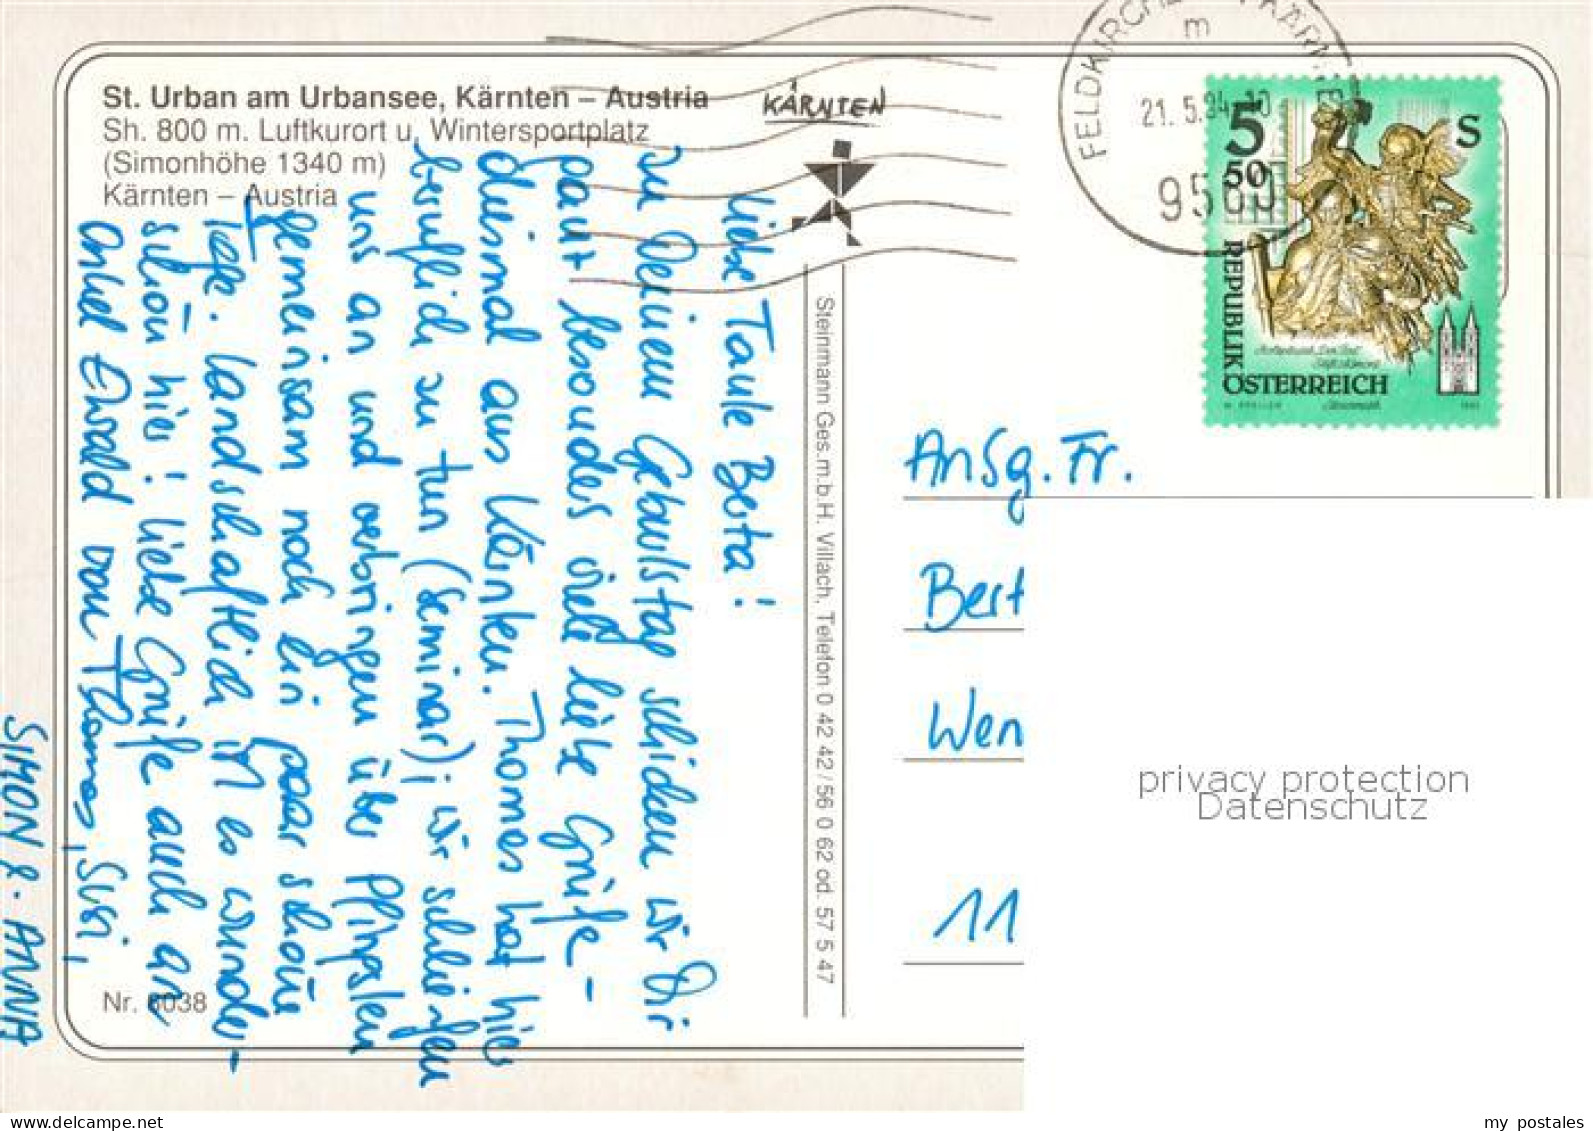 St. Urban am Urbansee, Kärnten – Austria
Sh. 800 m. Luftkurort u. Wintersportplatz
(Simonhöhe 1340 m)
Kärnten – Austria
KÄRNTEN
21. 5.94-10
m
9560
5
50
S
REPUBLIK
ÖSTERREICH
Liebe Tante Berta!
zu Deinem Geburtstag schicken wir Dir
ganz besonders viele liebe Grüße –
diesmal aus Kärnten. Thomas hat hier
beruflich zu tun (Seminar); wir schließen
uns an und verbringen über Pfingsten
gemeinsam noch ein paar schöne
Tage. Landschaftlich ist es wunder-
schön hier! Liebe Grüße auch an
Onkel Ewald von Thomas, Susi,
SIMON & ANNA
Steinmann Ges.m.b.H. Villach, Telefon 0 42 42 / 56 0 62 od. 57 5 47
Nr. 6038
Ansg. Fr.
Bert
Wen
11
privacy protection
Datenschutz
my postales